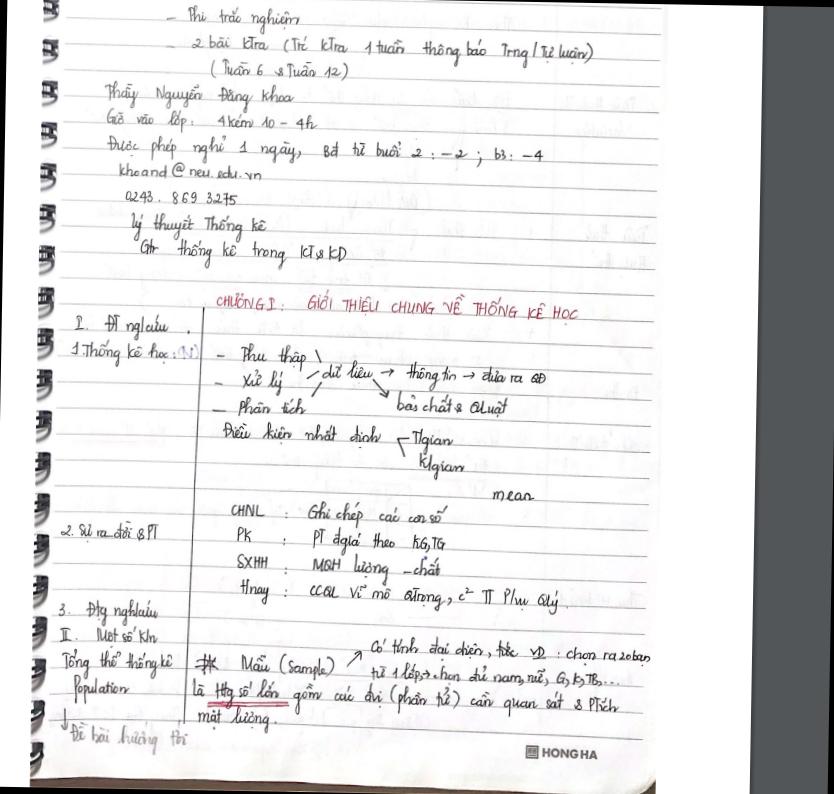 - Thi trắc nghiệm
- 2 bài KTra (Trc KTra 1 tuần thông báo Trng / Tự luận)
(Tuần 6 & Tuần 12)
Thầy Nguyễn Đăng Khoa
Giờ vào lớp: 4 kém 10 - 4h
Được phép nghỉ 1 ngày, Bđ từ buổi 2 : -2 ; b3: -4
khoand@neu.edu.vn
0243. 869 3275
Lý thuyết Thống kê
Gtr thống kê trong KT & KD
CHƯƠNG I: GIỚI THIỆU CHUNG VỀ THỐNG KÊ HỌC
I. ĐT ng/cứu
1. Thống kê học: (N)
- Thu thập
- Xử lý
- Phân tích
dữ liệu → thông tin → đưa ra QĐ
bản chất & QLuật
Điều kiện nhất định
T/gian
K/gian
mean
2. Sự ra đời & PT
CHNL : Ghi chép các con số
PK : PT đgiá theo KG, TG
SXHH : MQH lượng - chất
Hnay : CCQL vĩ mô Qtrọng, c² TT Phụ Qlý.
3. Đtg nghiên cứu
II. Một số Kn
Tổng thể thống kê
Population
Để bài hướng tới
* Mẫu (Sample)
Có tính đại diện, tức VD: chọn ra 20 bạn
từ 1 lớp → chọn đủ nam, nữ, G, K, TB,...
là Htg số lớn gồm các đvị (phần tử) cần quan sát & PTích
mặt lượng.
HONG HA